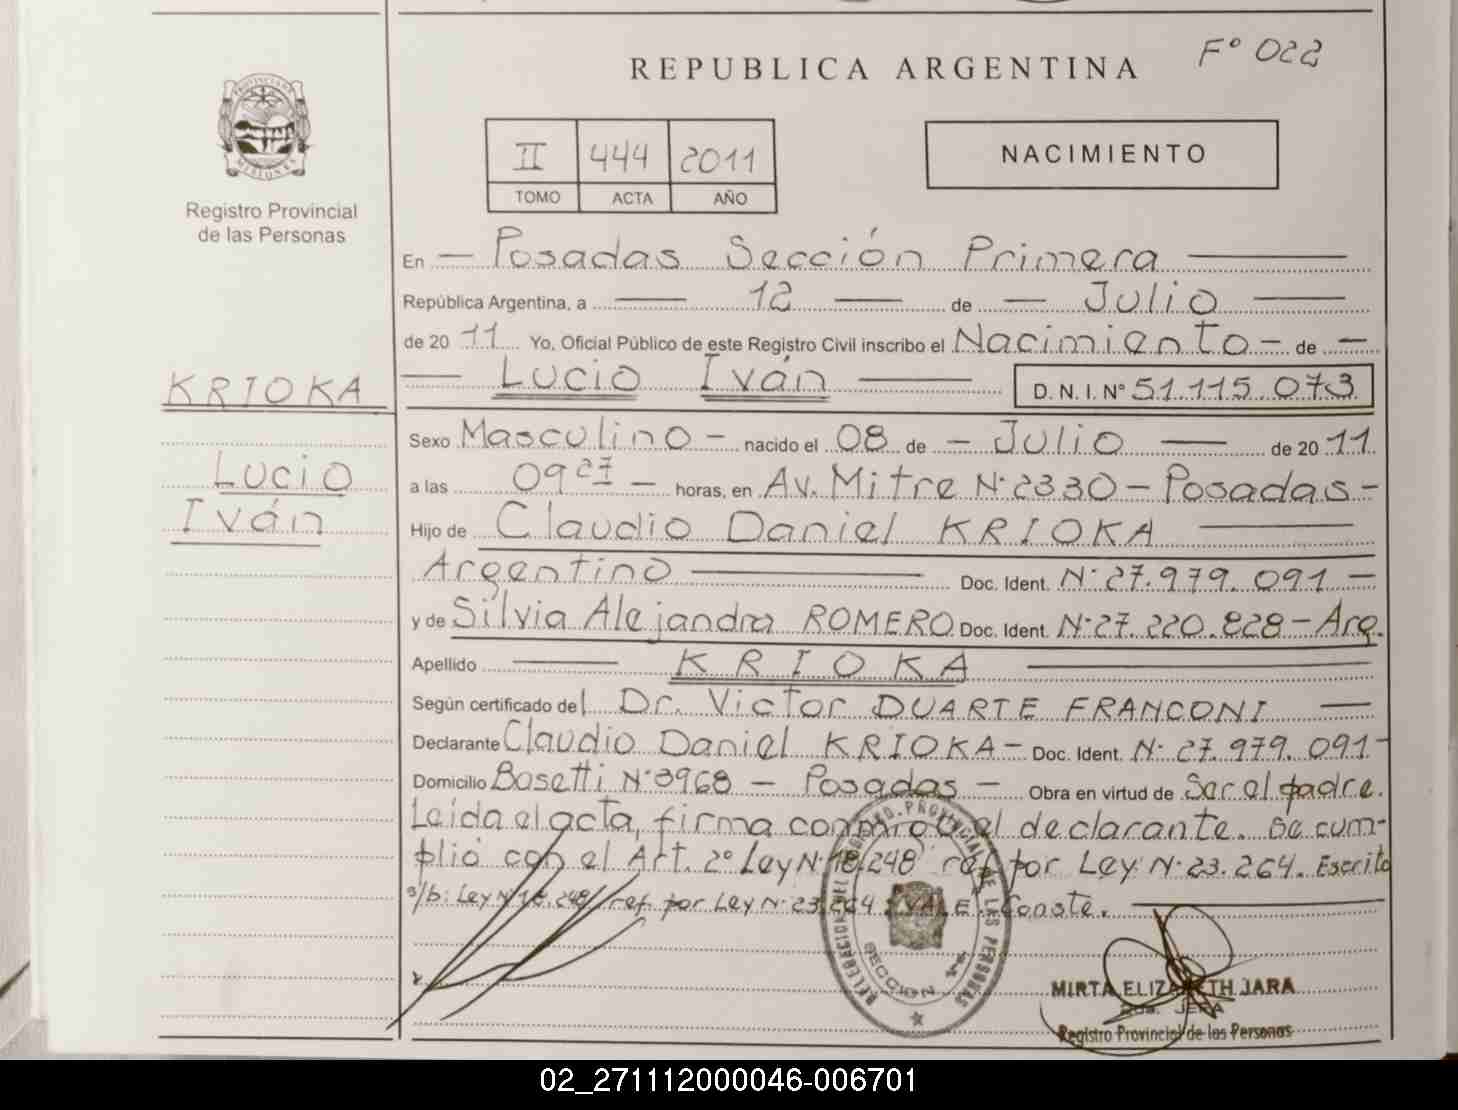 REPUBLICA ARGENTINA
Fº 022
PROVINCIA DE MISIONES
Registro Provincial
de las Personas
II 444 2011
TOMO ACTA AÑO
NACIMIENTO
En — Posadas Sección Primera —
República Argentina, a — 12 — de — Julio —
de 2011 Yo, Oficial Público de este Registro Civil inscribo el Nacimiento - de —
— Lucio Iván — D. N. I. Nº 51.115.073
KRIOKA
Lucio
Iván
Sexo Masculino - nacido el 08 de - Julio — de 2011
a las 09 27 - horas, en Av. Mitre Nº 2330 - Posadas -
Hijo de Claudio Daniel KRIOKA —
Argentino — Doc. Ident. Nº 27.979.091 —
y de Silvia Alejandra ROMERO Doc. Ident. Nº 27.220.828 - Arg.
Apellido — KRIOKA —
Según certificado del Dr. Victor DUARTE FRANCONI —
Declarante Claudio Daniel KRIOKA - Doc. Ident. Nº 27.979.091 -
Domicilio Bosetti Nº 3968 - Posadas - Obra en virtud de Ser el padre.
Leida el acta, firma conmigo el declarante. Se cum-
plió con el Art. 2º Ley Nº 18.248 ref por Ley Nº 23.264. Escrito
s/b: Ley Nº 18.248 ref. por Ley Nº 23.264: VALE. Conste. —
DELEGACION DEL REGISTRO PROVINCIAL DE LAS PERSONAS
SECCION 1ª
MIRTA ELIZABETH JARA
Registro Provincial de las Personas
02_271112000046-006701